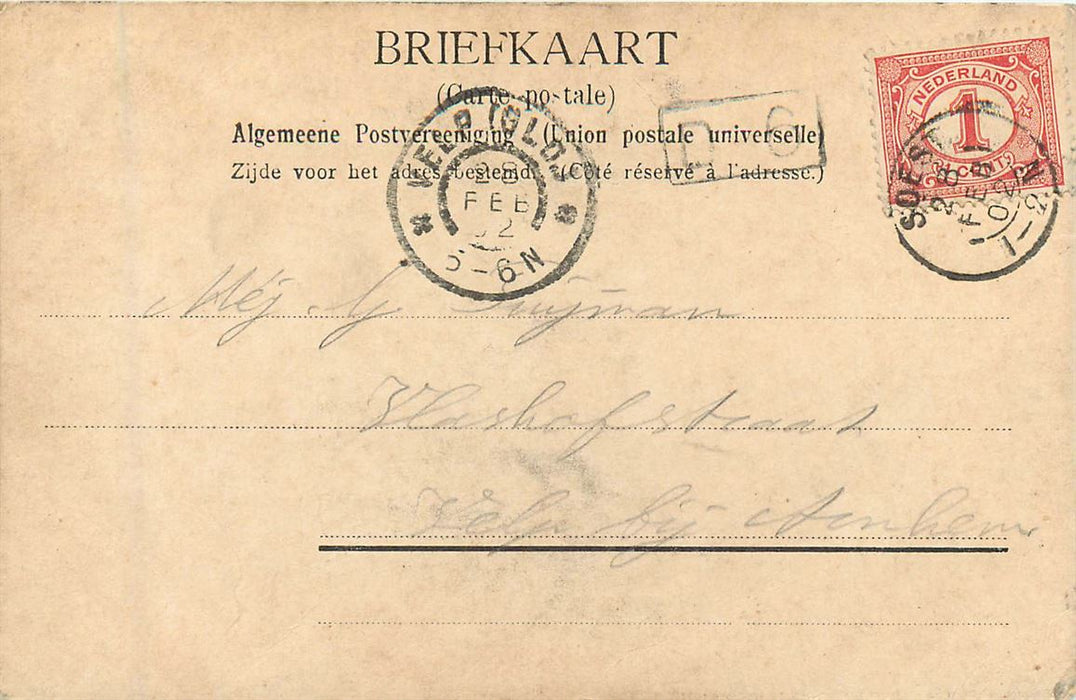 BRIEFKAART
(Carte postale)
Algemeene Postvereeniging (Union postale universelle)
Zijde voor het adres bestemd. (Côté réservé à l'adresse.)
NEDERLAND
1
CENT
SOEST
28 FEB
02
1-2N
VELP (GLD.)
28
FEB
02
5-6N
Mej. G.
Vlashofstraat
Velp bij Arnhem